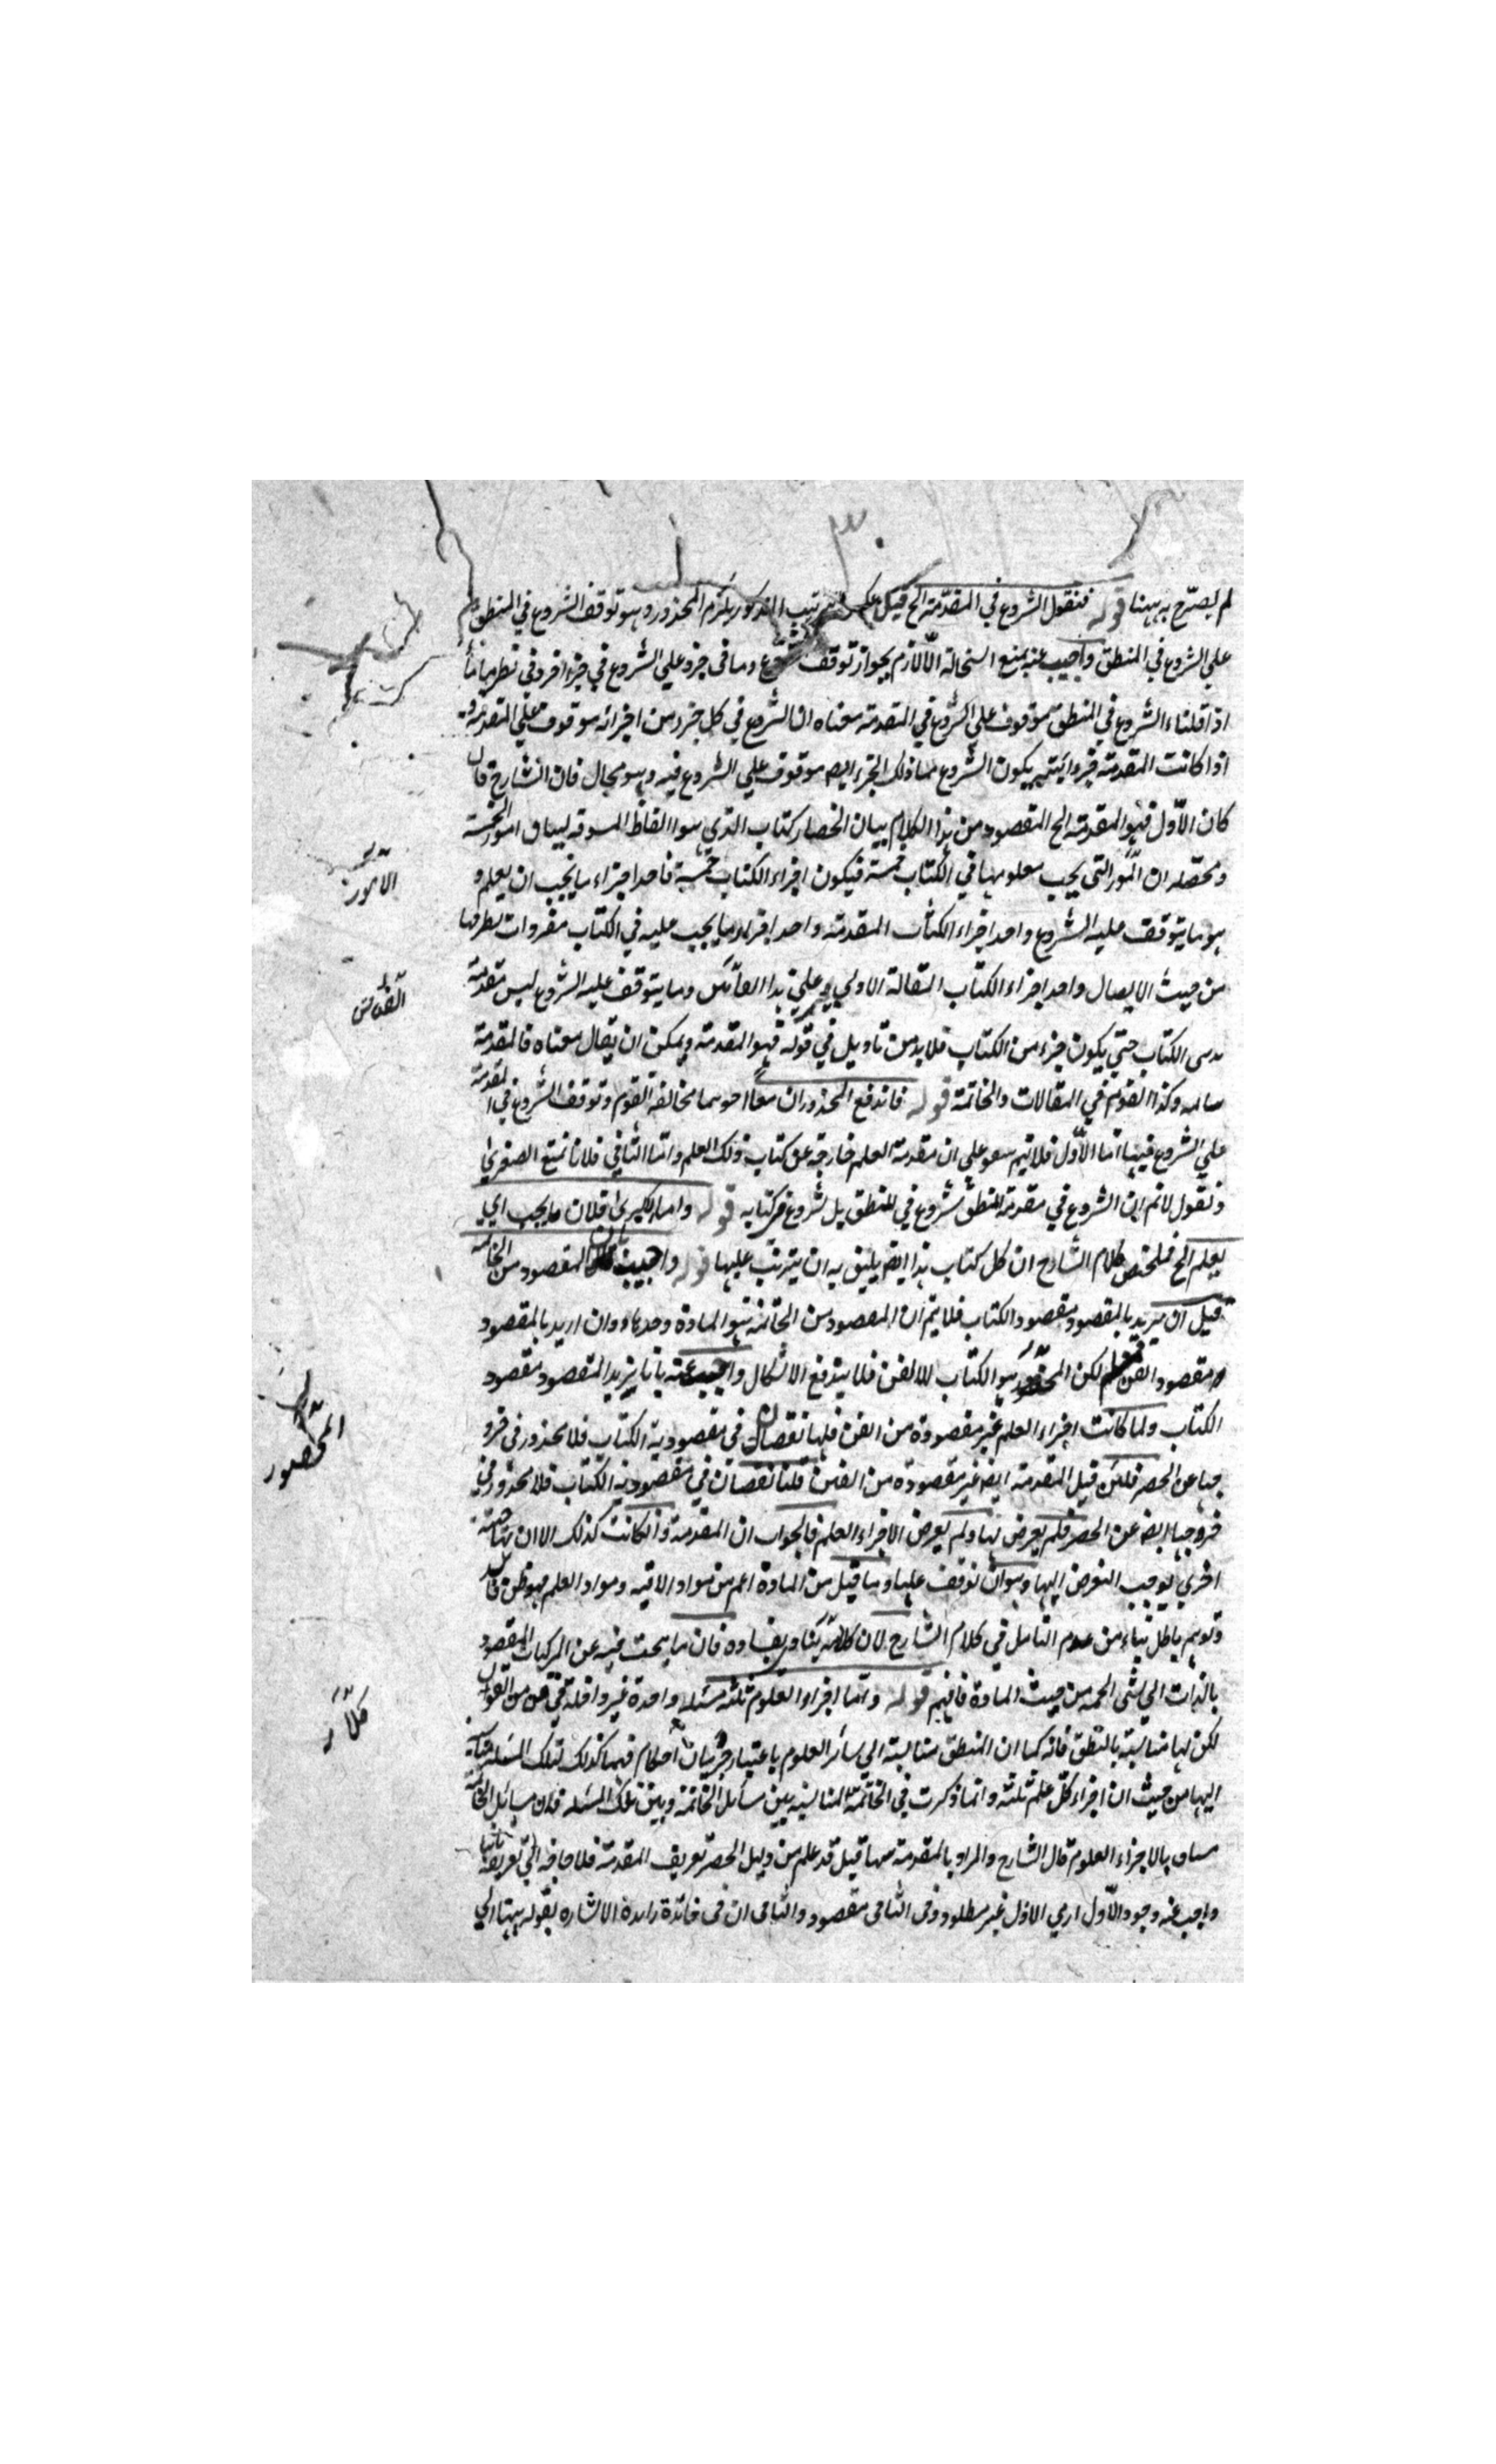 ٣٠
لم يصرح به ههنا قوله فنقول الشروع في المقدمة الخ قيل على ترتيب المذكور يلزم المحذور وهو توقف الشروع في المنطق
على الشروع في المنطق واجيب عنه بمنع استحالة اللازم بجواز توقف شروع وما في جزء على الشروع في جزء اخر وفي نظر
اذا قلنا الشروع في المنطق موقوف على الشروع في المقدمة معناه ان الشروع في كل جزء من اجزائه موقوف على المقدمة و
اذا كانت المقدمة جزوا يكون الشروع ذلك الجزء ايضا موقوف على الشروع فيه وهو محال فان الشارح قال
كان الاول فهو المقدمة الخ المقصود من هذا الكلام بيان انحصار كتاب الذي هو الفاظ المسوقة لبيان امور الخمسة
ومحصله ان التي يجب معلوميها في الكتاب خمسة فيكون اجزاء الكتاب خمسة فاحد اجزاء ما يجب ان يعلم و
هو ما يتوقف عليه الشروع واحد اجزاء الكتاب المقدمة واحد اجزاء ما يجب عليه في الكتاب مفردات
من حيث الايصال واحد اجزاء الكتاب المقالة الاولى على هذا القائس وما يتوقف عليه الشروع ليس مقدمة
الكتاب حتى يكون جزء من الكتاب فلا بد من تاويل في قوله فهو المقدمة ويمكن ان يقال معناه فالمقدمة
وكذا القول في المقالات والخاتمة قوله فاندفع المحذوران معا احدهما مخالفة القوم وتوقف الشروع في المقدمة
على الشروع فيها اما الاول فلانهم على ان مقدمة العلم خارجة عن كتاب ذلك العلم واما الثاني فلانا نمنع الصغرى
ونقول لانم ان الشروع في مقدمة المنطق شروع في المنطق بل شروع في كتابه قوله واما الكبرى فلان ما يجب اي
يعلم الخ فملخص كلام الشارح ان كل كتاب هذا ايضا يليق به ان يترتب عليها قوله واجيب بان المقصود من الخاتمة
قيل ان يريد بالمقصود مقصود الكتاب فلا يتم ان المقصود من الخاتمة هو المادة وحدها وان اريد بالمقصود
مقصود الفن لكن هو الكتاب لا الفن فلا يندفع الاشكال واجيب عنه بانا نريد المقصود مقصود
الكتاب ولما كانت اجزاء العلم غير مقصودة من الفن فلها نقصان في مقصودية الكتاب فلا محذور في خرو
جها عن الحصر فلئن قيل المقدمة ايضا غير مقصودة من الفن قلنا نقصان في مقصودية الكتاب فلا محذور في
خروجها ايضا عن الحصر فلم يعرض لها ولم يعرض الاجزاء العلم فالجواب ان المقدمة وان كانت كذلك الا ان لها جهة
اخرى يوجب التعرض اليها وهو ان توقف عليها وما قيل من المادة اعم من مواد الاقيسة ومواد العلم فهو ظن فاسد
وتوهم باطل بناء من عدم التامل في كلام الشارح لان كلامه ينادي بفساده فان ما يبحث فيه عن المركبات المقصود
بالذات من حيث المادة فافهم قوله واما اجزاء العلوم ثلثة مسئلة واحدة غير داخلة في فن من الفنون
لكن لها مناسبة بالمنطق فانه كما ان المنطق مناسبة الى سائر العلوم باعتبار جريان احكام فيها كذلك لتلك المسئلة مناسبة
اليها من حيث ان اجزاء كل علم ثلثة وانما ذكرت في الخاتمة المناسبة بين مسائل الخاتمة وبين تلك المسئلة فان مسائل الخاتمة
بالاجزاء العلوم قال الشارح والمراد بالمقدمة ههنا قيل قد علم من دليل الحصر تعريف المقدمة فلا حاجة الى تعريفه ثانيا
واجيب عنه وجود الاول ارمي الاول غير مطلوب وفي الثاني مقصود والثاني ان في فائدة زائدة الاشارة بقوله ههنا الى
الامور
القائس
المحصور
كلامه